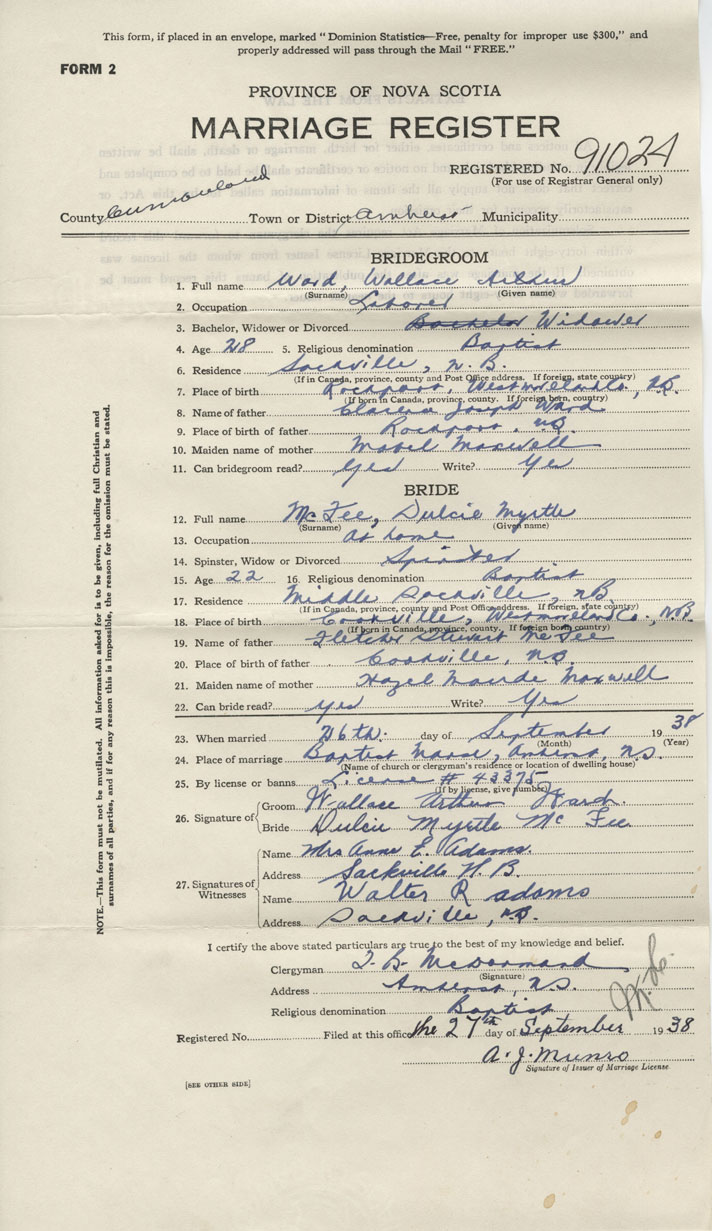 This form, if placed in an envelope, marked "Dominion Statistics—Free, penalty for improper use $300," and
properly addressed will pass through the Mail "FREE."
FORM 2
PROVINCE OF NOVA SCOTIA
MARRIAGE REGISTER
REGISTERED No. 91024
(For use of Registrar General only)
County Cumberland Town or District Amherst Municipality
BRIDEGROOM
1. Full name Ward, Wallace
(Surname) (Given name)
2. Occupation Laborer
3. Bachelor, Widower or Divorced Bachelor Widower
4. Age 28 5. Religious denomination Baptist
6. Residence Sackville, N.B.
(If in Canada, province, county and Post Office address. If foreign, state country)
7. Place of birth Rockport, Westmorland Co., N.B.
(If born in Canada, province, county. If foreign born, country)
8. Name of father Clarence Joseph Ward
9. Place of birth of father Rockport, N.B.
10. Maiden name of mother Mabel Maxwell
11. Can bridegroom read? Yes Write? Yes
BRIDE
12. Full name McFee, Dulcie Myrtle
(Surname) (Given name)
13. Occupation At home
14. Spinster, Widow or Divorced Spinster
15. Age 22 16. Religious denomination Baptist
17. Residence Middle Sackville, N.B.
(If in Canada, province, county and Post Office address. If foreign, state country)
18. Place of birth Cookville, Westmorland Co., N.B.
(If born in Canada, province, county. If foreign born, country)
19. Name of father Fletcher Stewart McFee
20. Place of birth of father Cookville, N.B.
21. Maiden name of mother Hazel Maude Maxwell
22. Can bride read? Yes Write? Yes
23. When married 26th. day of September 1938
(Month) (Year)
24. Place of marriage Baptist Manse, Amherst, N.S.
(Name of church or clergyman's residence or location of dwelling house)
25. By license or banns License # 43375
(If by license, give number)
26. Signature of
Groom Wallace Arthur Ward.
Bride Dulcie Myrtle McFee
27. Signatures of Witnesses
Name Mrs Anne E. Adams.
Address Sackville N.B.
Name Walter R Adams
Address Sackville, N.B.
I certify the above stated particulars are true to the best of my knowledge and belief.
Clergyman McDormand
(Signature)
Address Amherst, N.S.
Religious denomination Baptist
Registered No. Filed at this office the 27th day of September 1938
A. J. Munro
Signature of Issuer of Marriage License
[SEE OTHER SIDE]
NOTE.—This form must not be mutilated. All information asked for is to be given, including full Christian and
surnames of all parties, and if for any reason this is impossible, the reason for the omission must be stated.